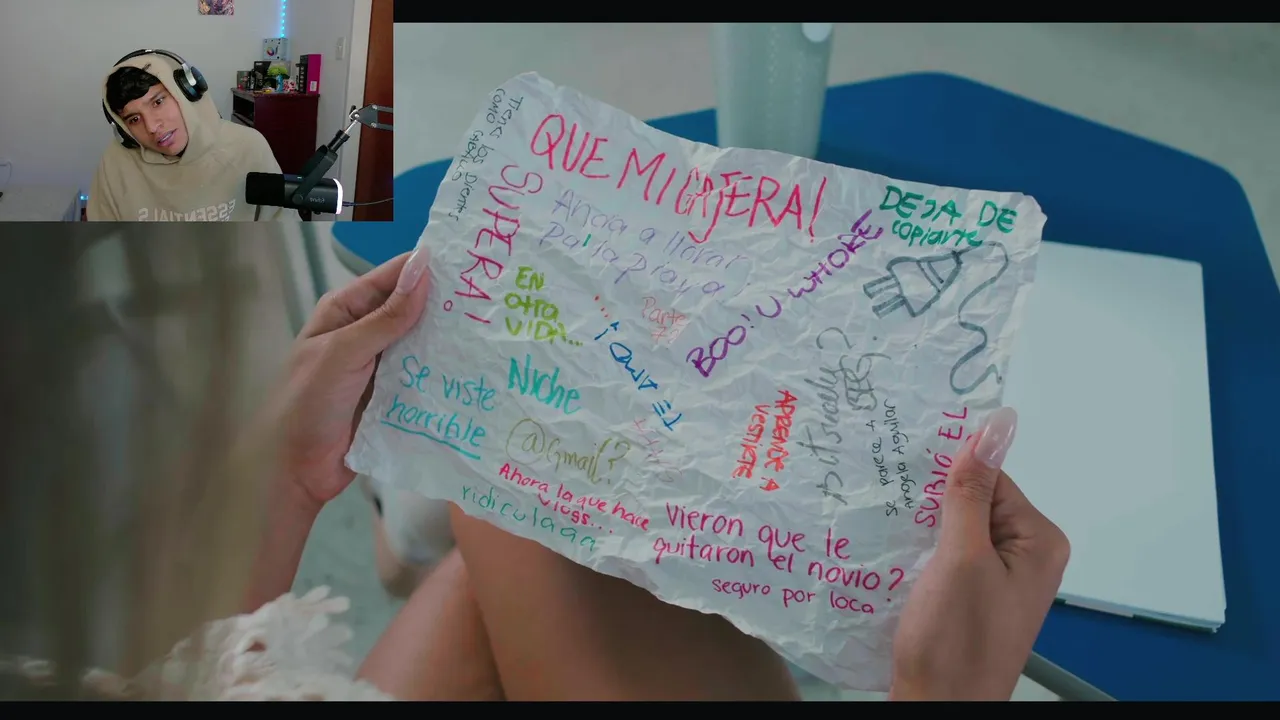 Tienes los dientes
como
QUE MI GATERA!
SUPERA!
Anda a llorar
pa' la playa
DEJA DE
copiarte
BOO! U WHORE
EN
otra
VIDA...
Parte
TE AMO!
Se viste
horrible
Niche
@Gmail?
Ahora la que hace
vlogs...
ridiculaaa
APRENDE A
VESTIRTE
se parece a
Angela Aguilar
SUBIÓ EL
Vieron que le
quitaron el novio?
seguro por loca
ESSENTIALS